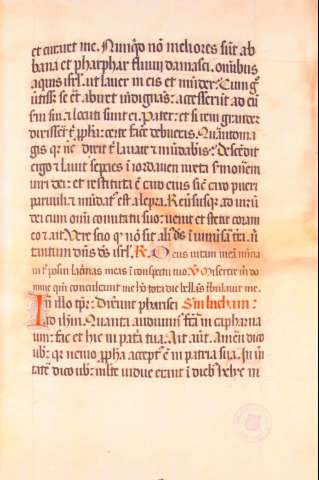 et curaret me. Nunqd nō meliores sūt ab
bana et pharphar fluvii damasci. om̄ibus
aquis isrl. ut laver in eis et mūder. Cum g°
dignās: accesserūt ad eū
sui. et locuti sunt ei. pater. et si rem grandē
dixisset t ppha. certe fac̄e debueras. Quātoma
gis qr nc̄ dixit t lavare et mūdabis. Descēdit
et lavit septies ī iordanem iuxta smonem
viri dei. et restituta ē caro eius sic caro pueri
parvuli. et mūdat est a lepra. Reversusq. ad virū
dei cum om̄i comitatu suo. venit et stetit coram
eo et ait. Vere scio q nō sit ali ds ī
tantum dūs ds isrl. R. Deus vitam meā nūtia
vi t posui lacrimas meas ī conspectu tuo. V Miserere m dō
mine qm conculcavit me hō tota die bellās tbulavit me.
In illo tpr. Dixerunt pharisei Sm lucham:
ad ihm. Quanta audivim fcā in capharna
um. fac et hic in patria tua. Ait aūt. Amen dico
vob. qr nemo ppha accept ē in patria sua. In vi
tate dico vob. multe vidue erant ī dieb helye in